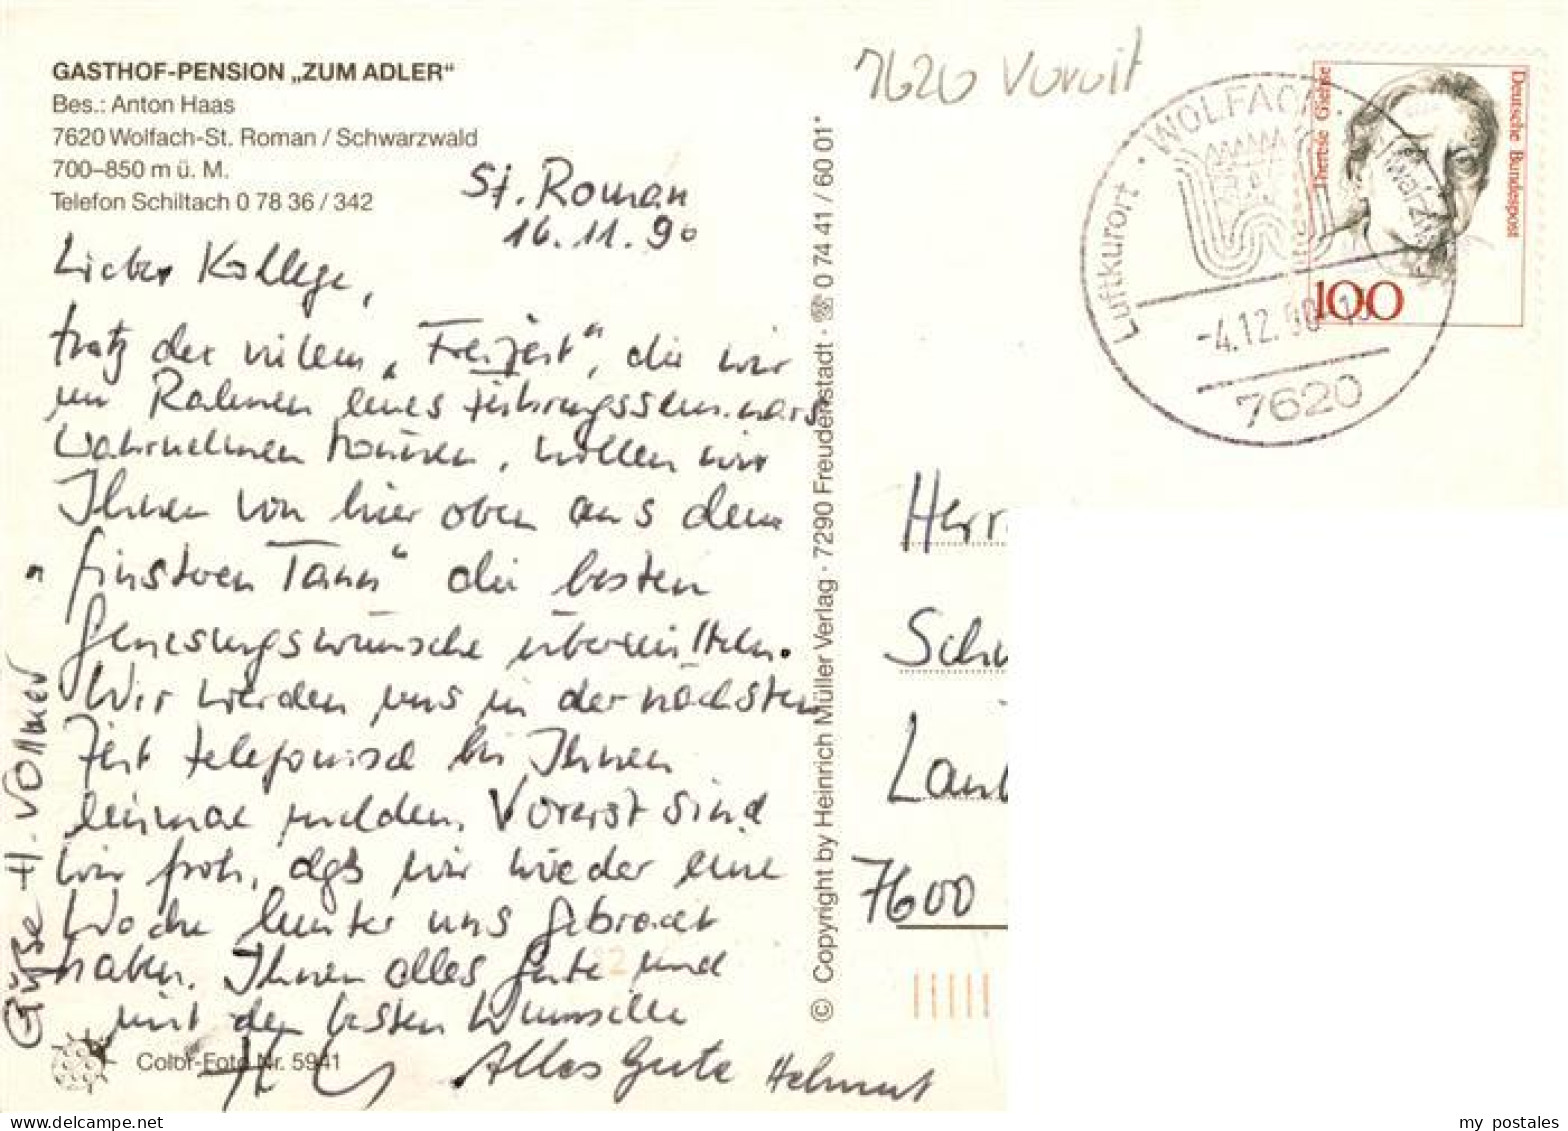 GASTHOF-PENSION „ZUM ADLER“
Bes.: Anton Haas
7620 Wolfach-St. Roman / Schwarzwald
700–850 m ü. M.
Telefon Schiltach 0 78 36 / 342
St. Roman
16.11.90
Lieber Kollege,
trotz der vielen „Freizeit“, die wir
im Rahmen eines Führungsseminars
wahrnehmen können, wollen wir
Ihnen von hier oben aus dem
„finsteren Tann“ die besten
Genesungswünsche übermitteln.
Wir werden uns in der nächsten
Zeit telefonisch bei Ihnen
einmal melden. Vorerst sind
wir froh, daß wir wieder eine
Woche hinter uns gebracht
haben. Ihnen alles Gute und
mit den besten Wünschen
Alles Gute Helmut
Grüße H. Vollmer
Color-Foto Nr. 5941
© Copyright by Heinrich Müller Verlag · 7290 Freudenstadt · ☎ 0 74 41 / 60 01
7620
Luftkurort · WOLFACH · Schwarzw
-4.12.90
7620
Deutsche Bundespost
Therese Giehse
100
Herr
Sch
Laut
7600
my postales